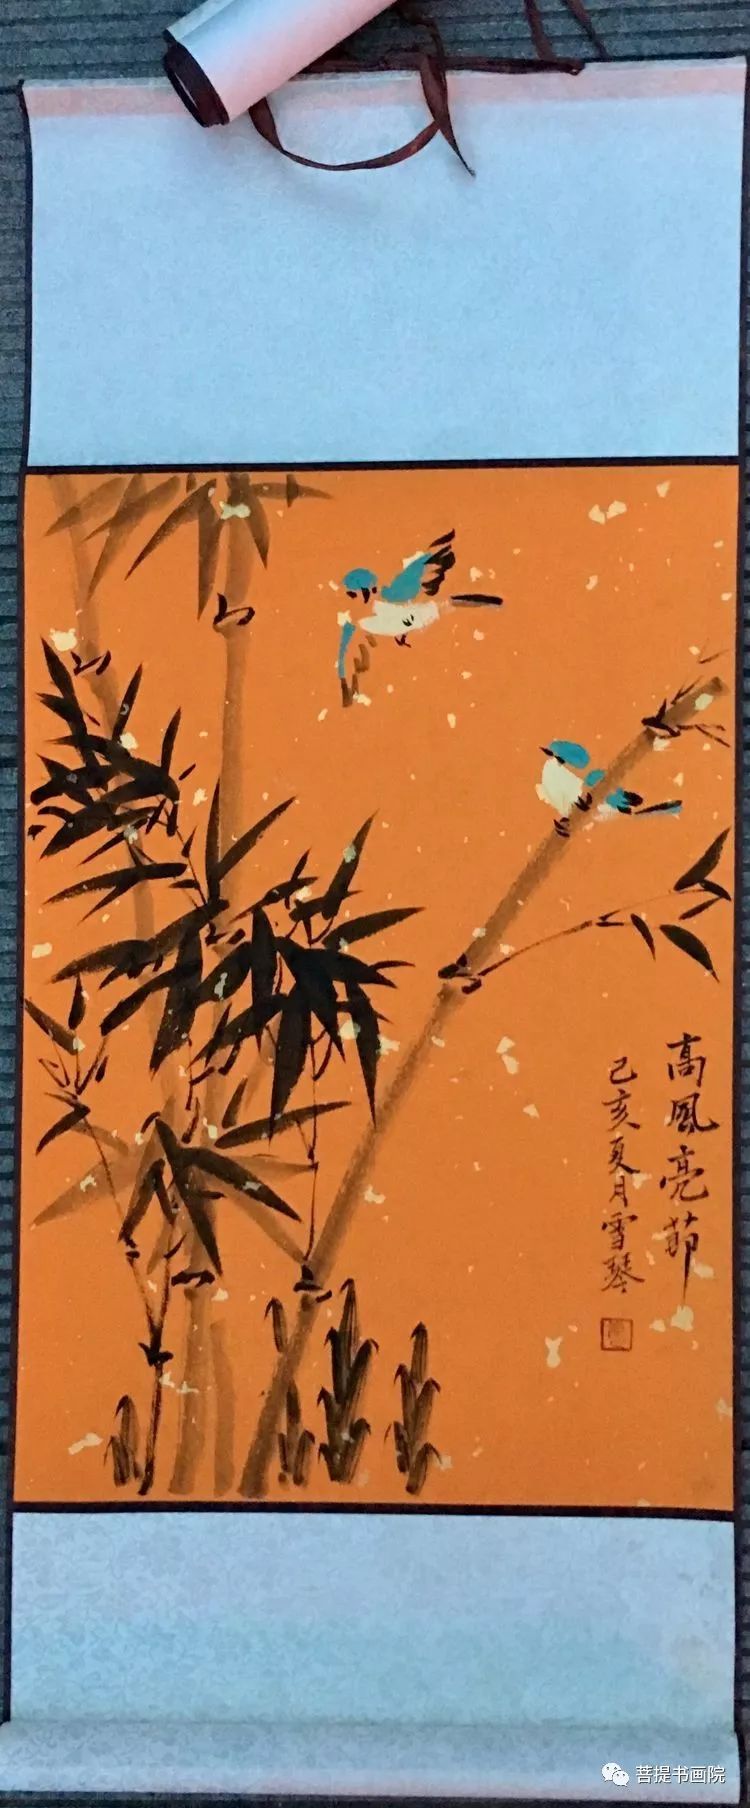 高風亮節
己亥夏月雪琴
菩提书画院